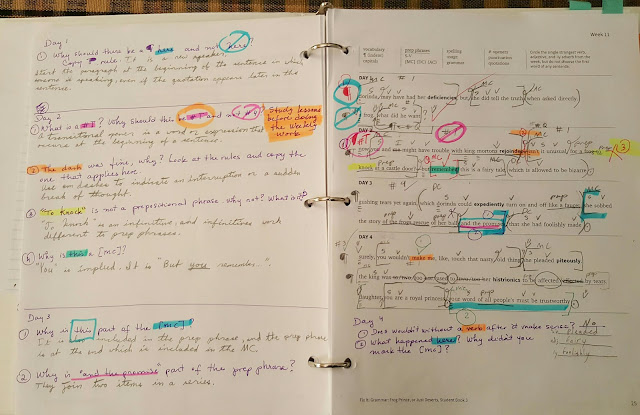 Day 1
① Why should there be a ¶ here and not here?
Copy ¶ rule. It is a new speaker.
Start the paragraph at the beginning of the sentence in which
someone is speaking, even if the quotation appears later in this
sentence.
Day 2
① What is a #1? Why should this be #1 and not #4?
A transitional opener is a word or expression that
occurs at the beginning of a sentence.
Study lessons
before doing
the Weekly
Work
② The dash was fine, why? Look at the rules and copy the
one that applies here.
Use em dashes to indicate an interruption or a sudden
break of thought.
③ "To knock" is not a prepositional phrase. Why not? What is it?
"To knock" is an infinitive, and infinitives work
different to prep phrases.
Why is this a [mc]?
"You" is implied. It is "But you remember..."
Day 3
① Why is this part of the [mc]?
It is included in the prep phrase, and the prep phrase
is at the end which is included in the MC.
② Why is "and the promise" part of the prep phrase?
They join two items in a series.
Week 11
vocabulary
¶ (indent)
capitals
prep phrases
S V
[MC] (DC) (AC)
spelling
usage
grammar
# openers
punctuation
DAY 1
dorinda, may have had her deficiencies, but she did tell the truth when asked directly
a frog, what did he want
DAY 2
you might have trouble with king mortons is unusual, for a frog to
knock at a castle door? but remember this is a fairy tale, which is allowed to be bizarre
DAY 3
gushing tears yet again, which dorinda could expediently turn on and off like a faucet, she sobbed
the story of the frogs rescue of her ball, and the promise that she had foolishly made
DAY 4
surely, you wouldn't make me, like, touch that nasty old thing she pleaded piteously
the king was to her histrionics to be affected by tears
daughter, you are a royal princess your word of all people's must be trustworthy
Day 4
① Does wouldn't without a verb after it make sense? No
② What happened here? Why didn't you
mark the [mc]?
pleaded
foolishly
Fix It! Grammar: Frog Prince, or Just Deserts, Student Book 3